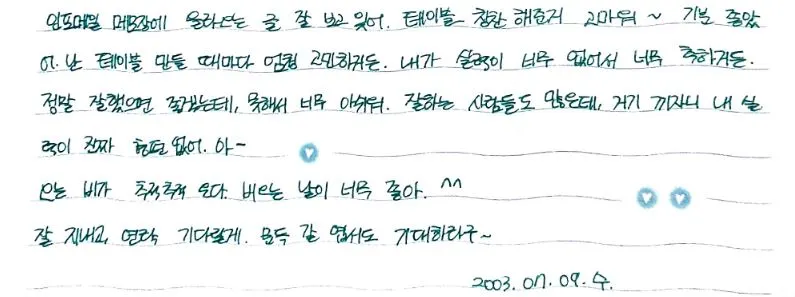 인포메일 메모장에 올라오는 글 잘 보고 있어. 테이블 칭찬 해준거 고마워~ 기분 좋았
어. 난 테이블 만들 때마다 엄청 고민하거든. 내가 실력이 너무 없어서 너무 추하거든.
정말 잘했으면 좋겠는데, 못해서 너무 아쉬워. 잘하는 사람들도 많은데, 거기 끼자니 내 실
력이 진짜 없어. 아~
오는 비가 추적추적 온다. 비오는 날이 너무 좋아. ^^
잘 지내고, 연락 기다릴게. 갈 엽서도 기대하라구~
2003. 07. 09. 수.